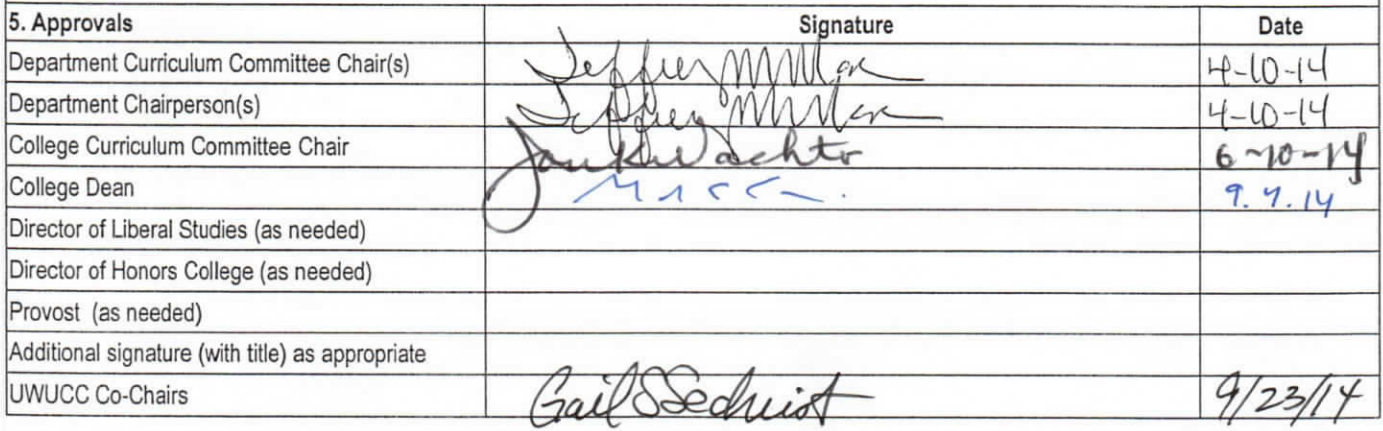 5. Approvals Signature Date
Department Curriculum Committee Chair(s) Jeffrey Miller 4-10-14
Department Chairperson(s) Jeffrey Miller 4-10-14
College Curriculum Committee Chair Jan K Wachter 6-10-14
College Dean 9.4.14
Director of Liberal Studies (as needed)
Director of Honors College (as needed)
Provost (as needed)
Additional signature (with title) as appropriate
UWUCC Co-Chairs Gail S Sechrist 9/23/14